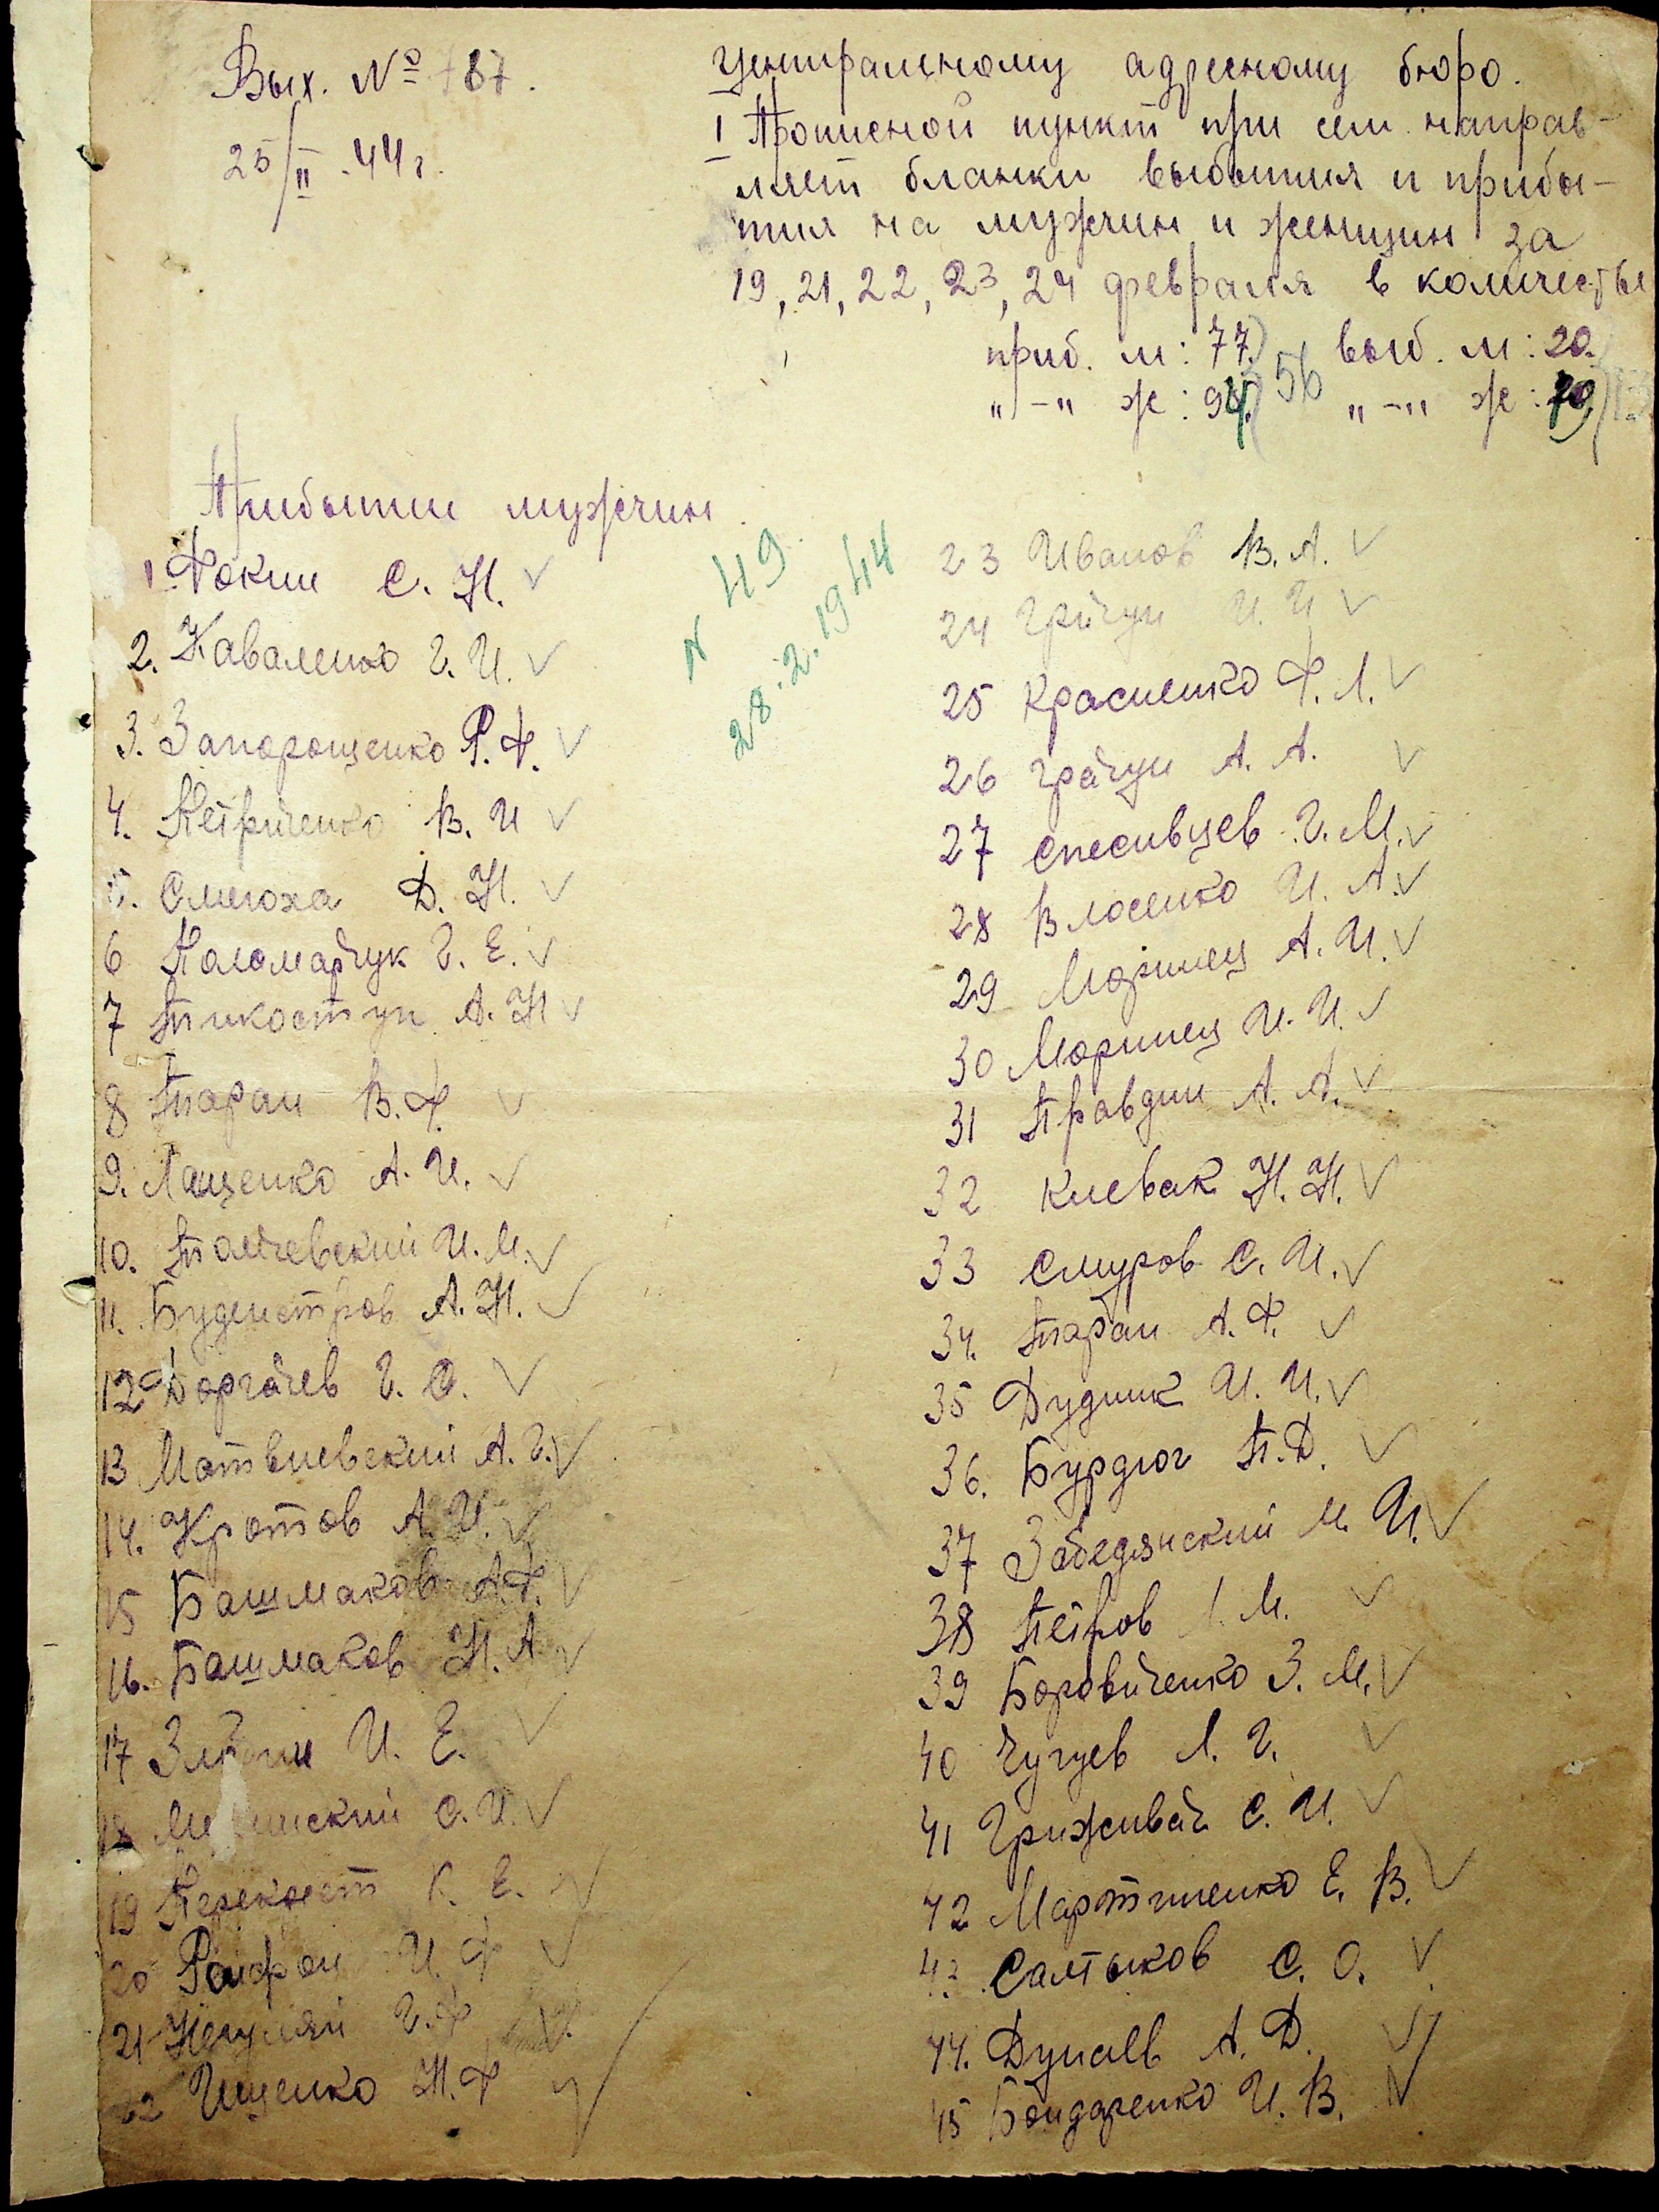 Вых. № 787.
25/II.44 г.
Центральному адресному бюро.
I Прописной пункт при сем направ-
ляет бланки выбытия и прибы-
тия на мужчин и женщин за
19, 21, 22, 23, 24 февраля в количестве
приб. м: 77. выб. м: 20.
56
" — " ж: 94. " — " ж:
Прибытии мужчин.
N 49.
28.2.1944
1. Фокин С. Н.
2. Каваленко Г. И.
3. Запорощенко Р. Ф.
4. Петриченко В. И
5. Смеюха Д. Н.
6 Паламарчук Г. Е.
7 А. Н
8 Таран В. Ф.
9. Лащенко А. И.
10. И. М.
11. А. Н.
12 Г. С.
13 Матвиевский А. Г.
14. Кротов А. И.
15 Башмаков А. Ф.
16. Башмаков Н. А
17 И. Е.
18 С. И.
19 Перекрест К. Е.
20 И. Ф
21 Г. Ф
22 Ищенко Н. Ф
23 Иванов В. А.
24 И. И
25 Красненко Ф. Л.
26 А. А.
27 Спесивцев Г. М.
28 Власенко И. А.
29 Моринец А. И.
30 Моринец И. И.
31 Правдин А. А.
32 Киевак Н. Н.
33 Смуров С. И.
34. Таран А. Ф.
35 Дудник И. И.
36. Бурдюг П. Д.
37 М. И.
38 Петров М.
39 Боровиченко З. М.
40 Чугуев Л. Г.
41 Гриживач С. И.
42 Мартиненко Е. В.
43 Салтыков С. О.
44. Дунаев А. Д.
45 Бондаренко И. В.